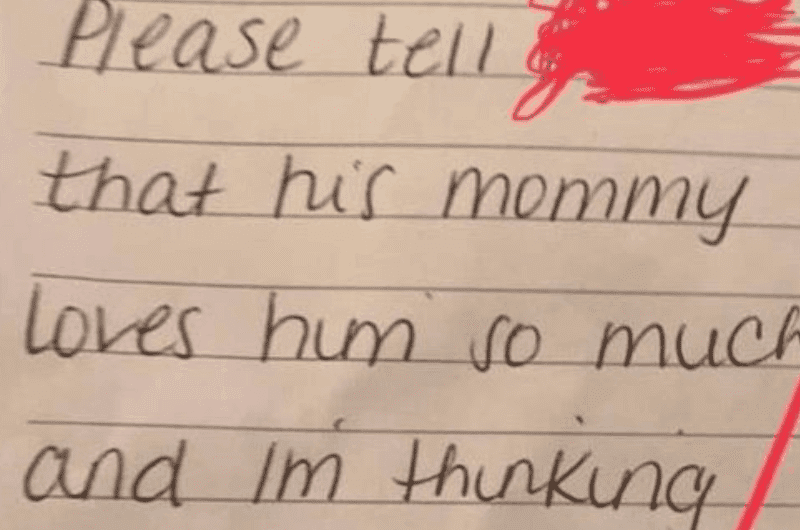 Please tell
that his mommy
loves him so much
and I'm thinking